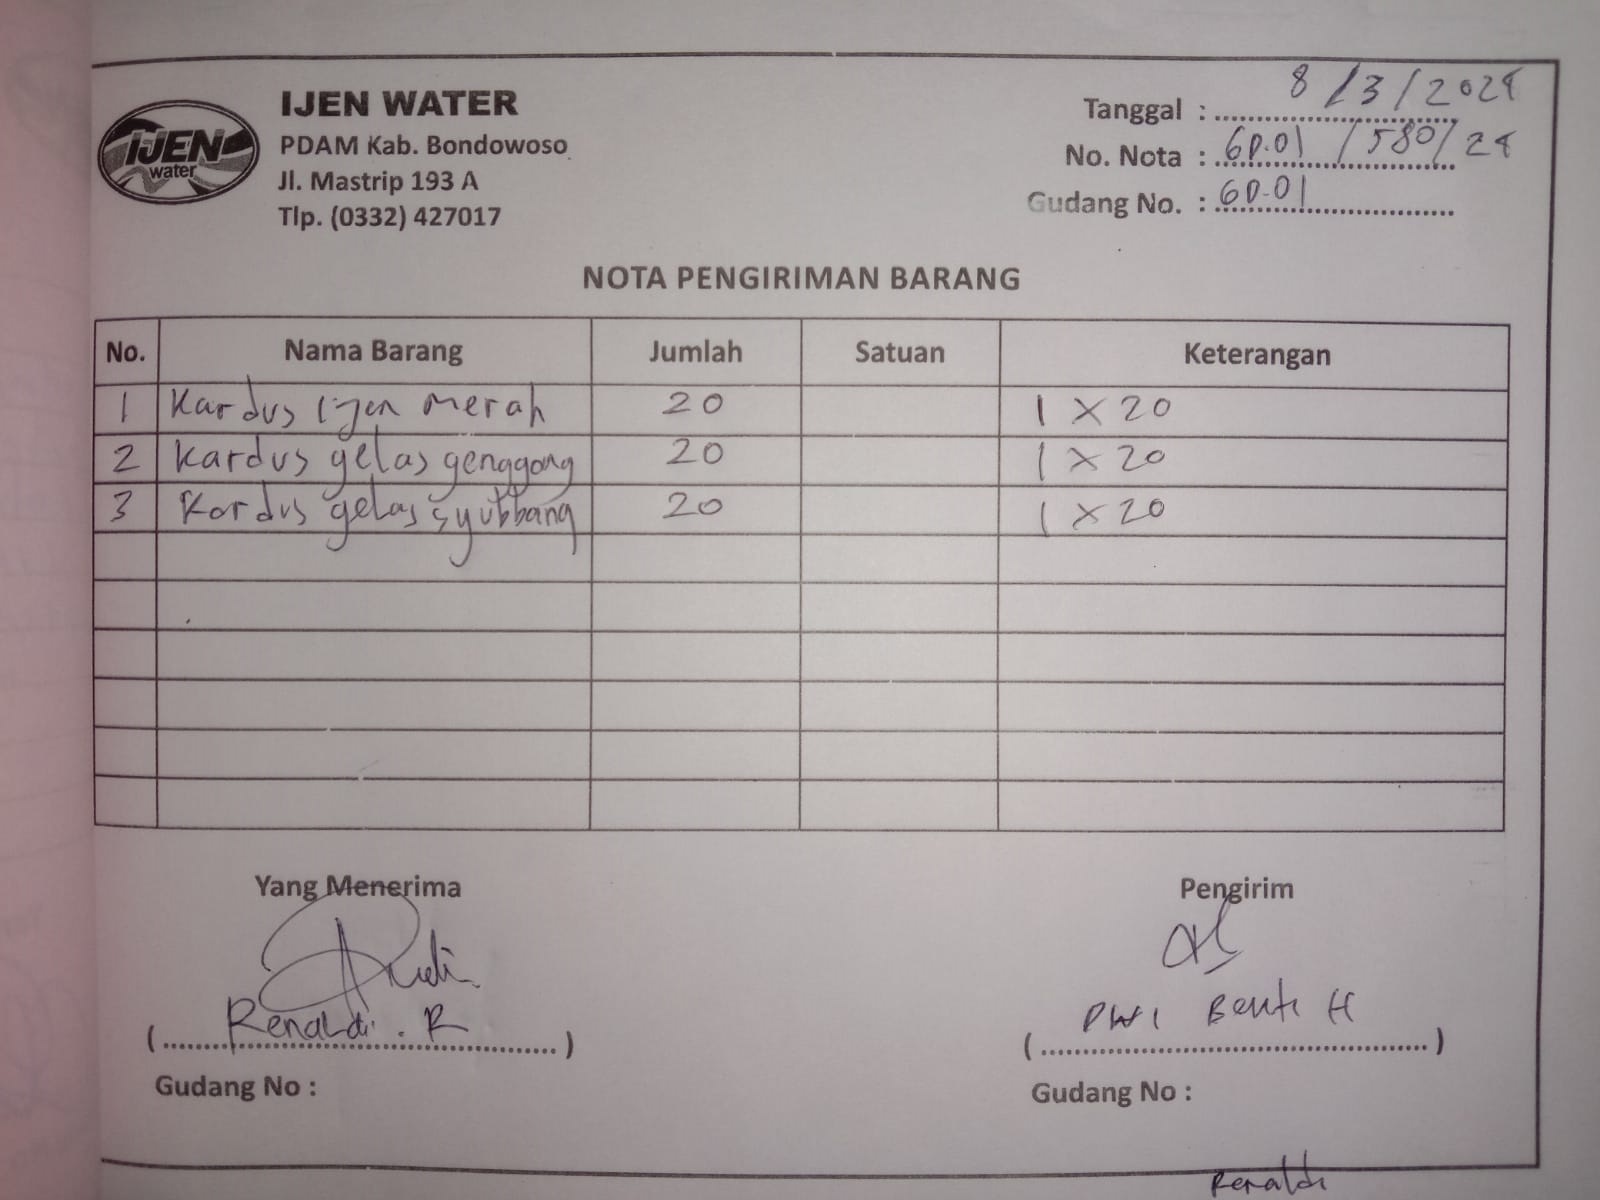 IJEN
water
IJEN WATER
PDAM Kab. Bondowoso
Jl. Mastrip 193 A
Tlp. (0332) 427017
Tanggal : 8/3/2024
No. Nota : GD.01/580/24
Gudang No. : GD-01
NOTA PENGIRIMAN BARANG
No. Nama Barang Jumlah Satuan Keterangan
1 Kardus ijen merah 20 1 X 20
2 Kardus gelas genggong 20 1 X 20
3 Kardus gelas syubbang 20 1 X 20
Yang Menerima Pengirim
(Renaldi. R) (DWI Benti H)
Gudang No : Gudang No :
Renaldi